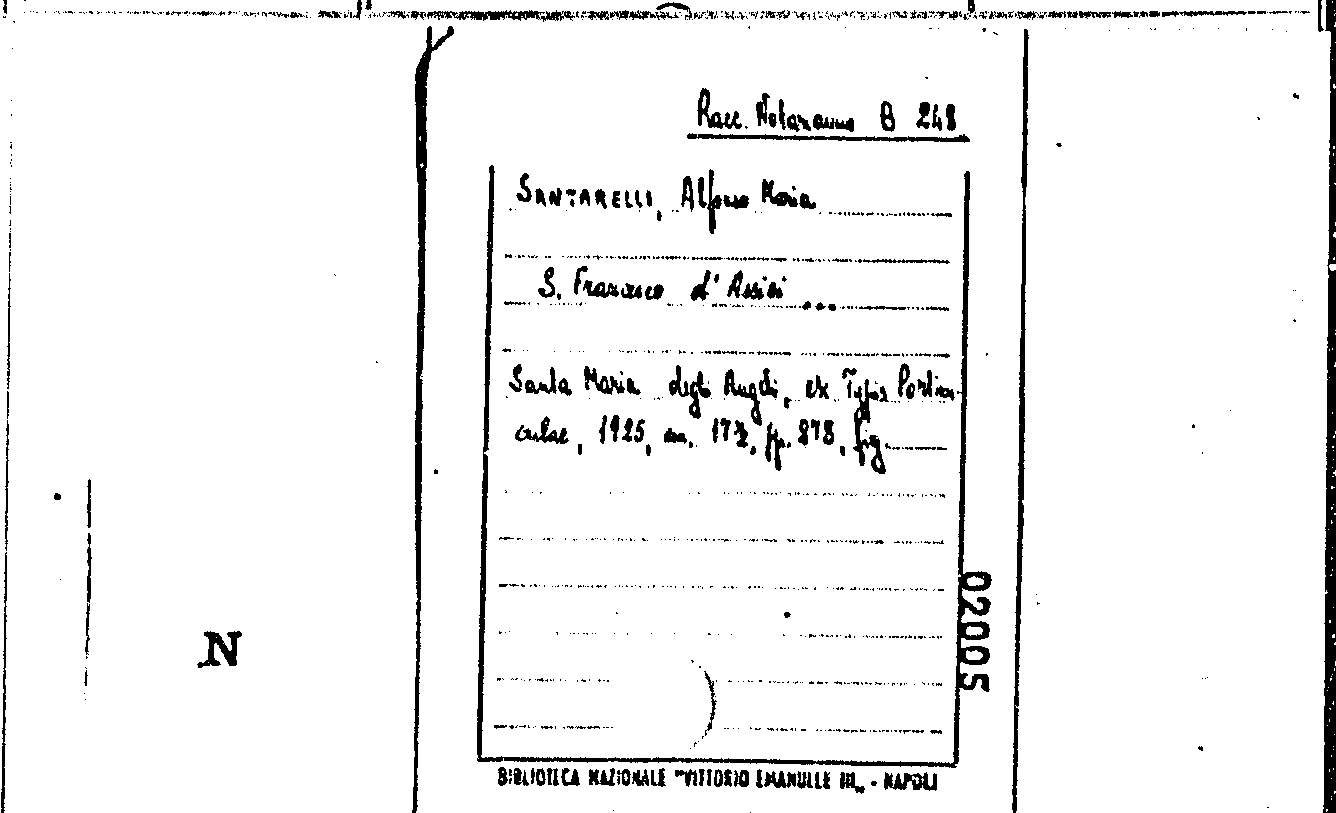 Racc. Notarianni B 248
SANTARELLI, Alfonso Maria
S. Francesco d'Assisi ...
Santa Maria degli Angeli, ex Typis Portiun-
culae, 1925, cm. 17½, pp. 878, fig.
02005
N
BIBLIOTECA NAZIONALE "VITTORIO EMANUELE III„ - NAPOLI